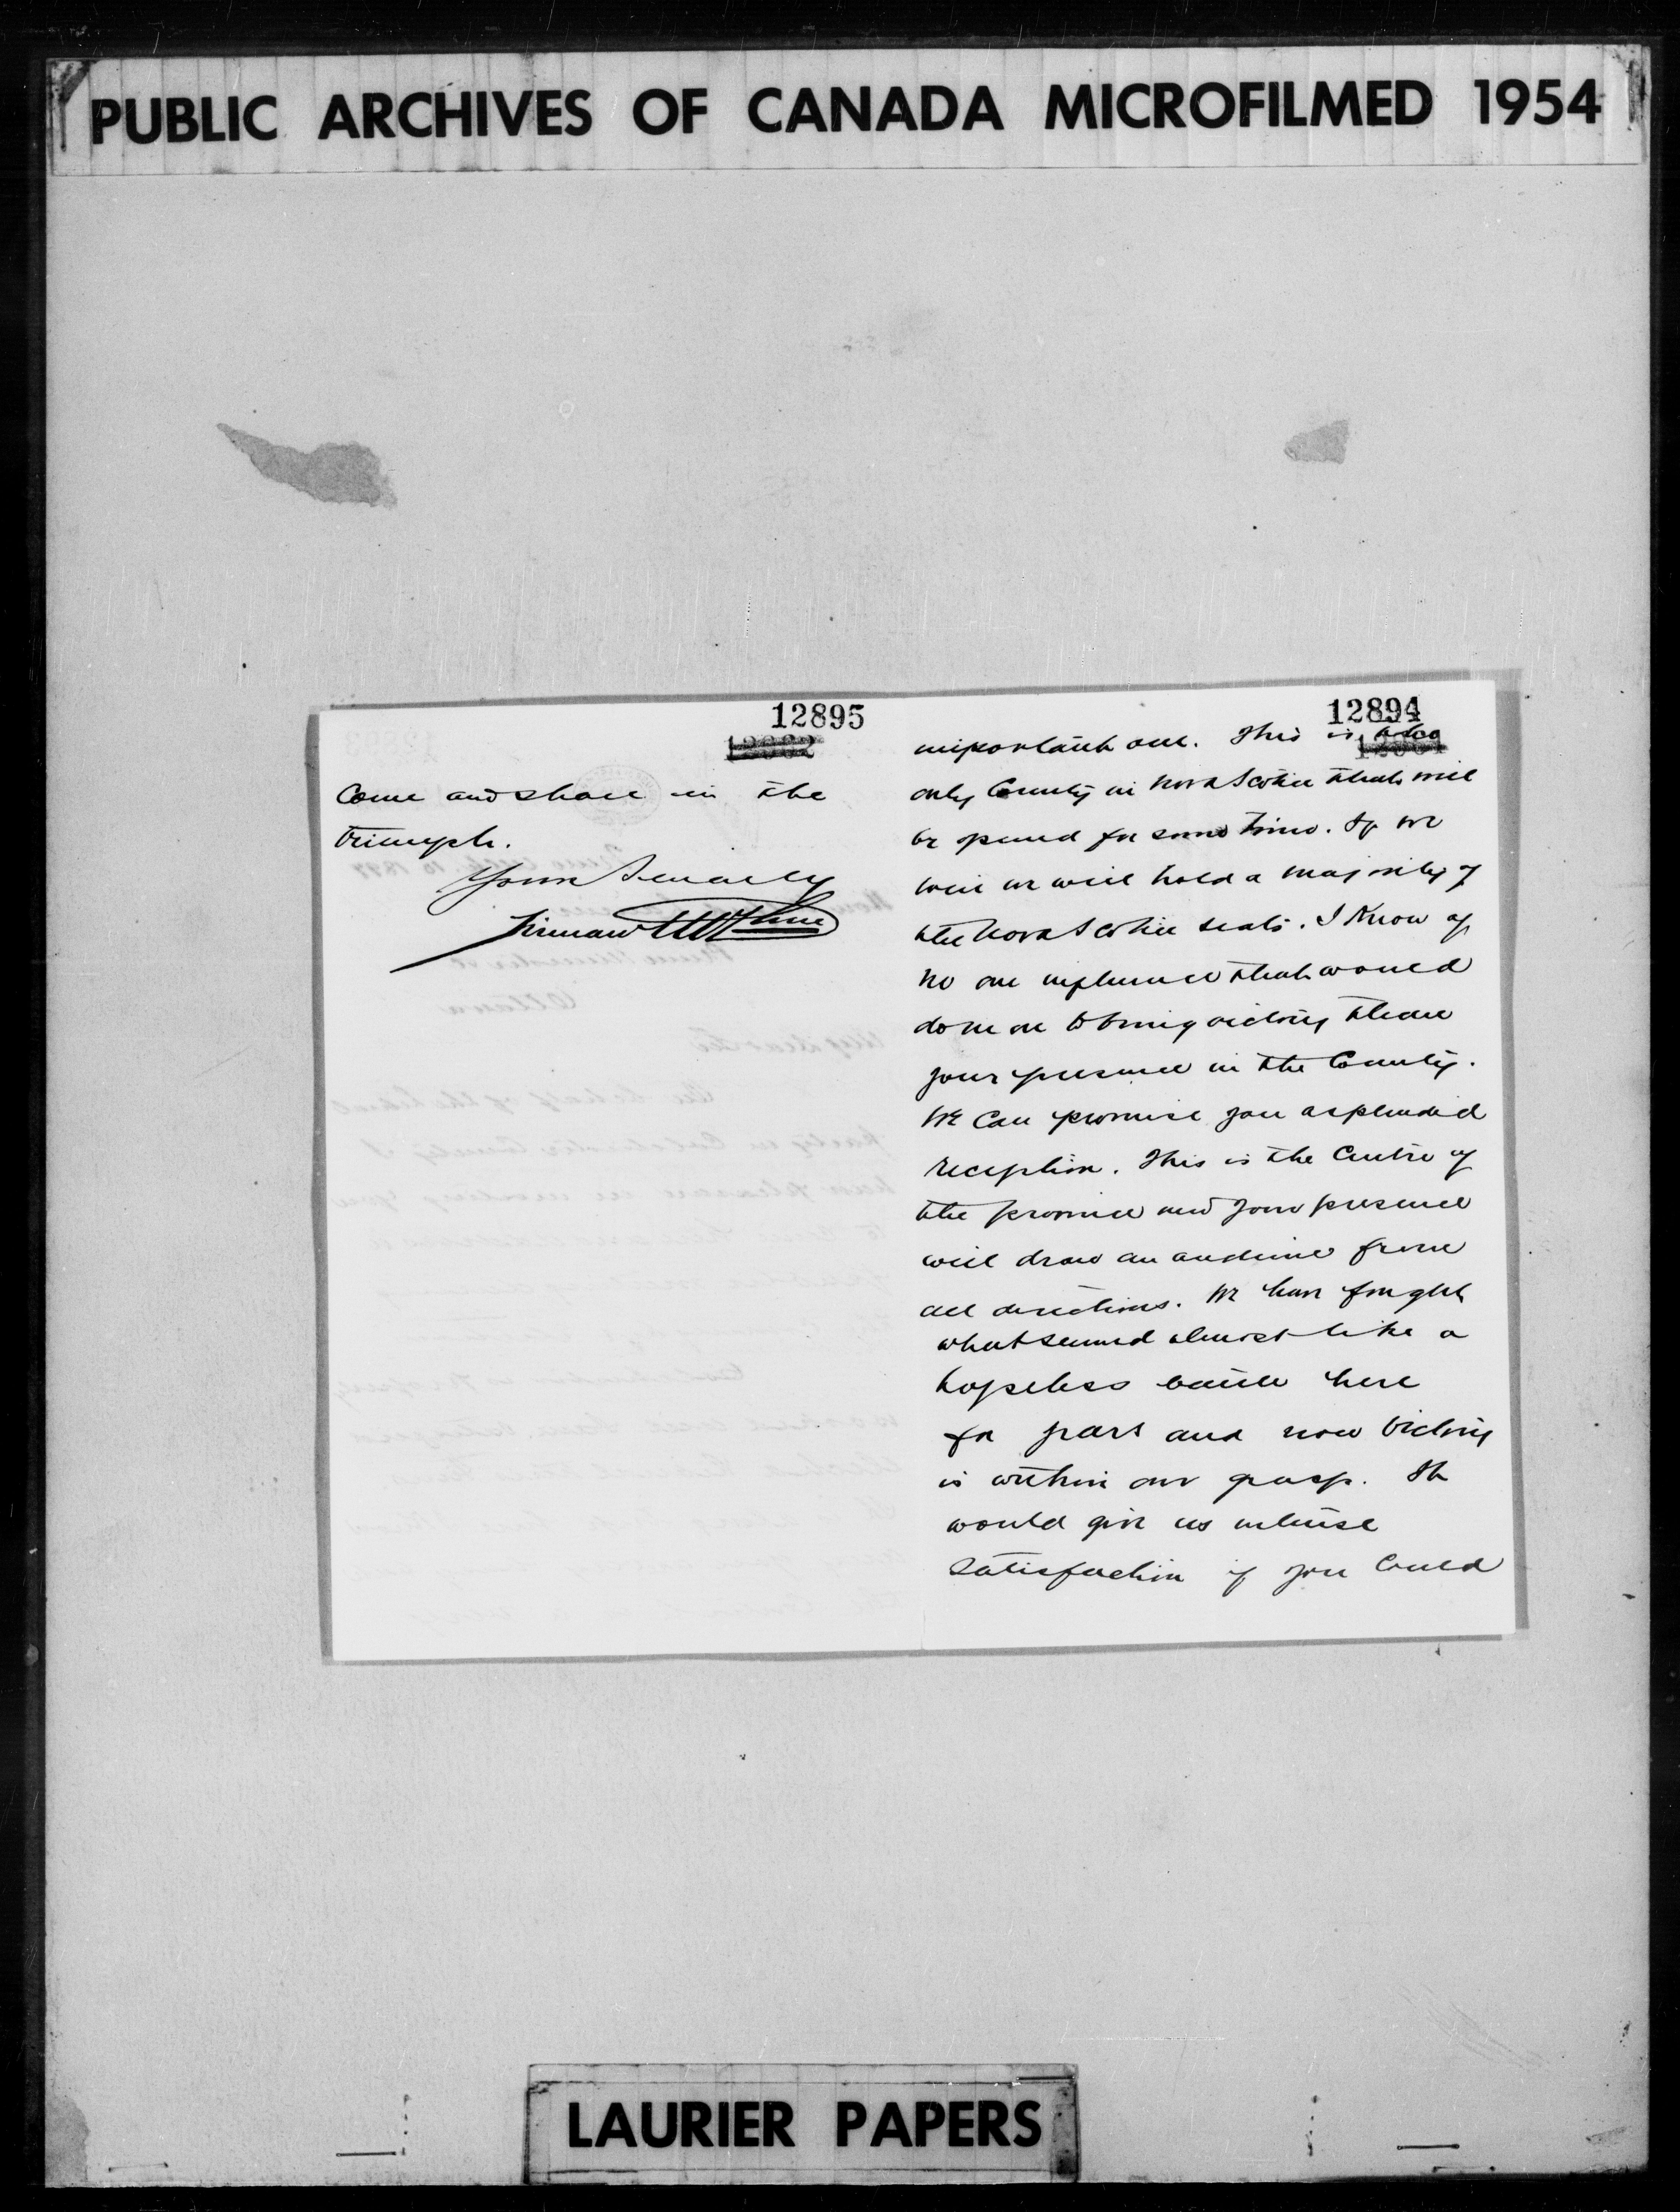 PUBLIC ARCHIVES OF CANADA MICROFILMED 1954
12895
Come and share in the
triumph.
Yours Sincerely
Firman McClure
12894
important one. This is also
only County in Nova Scotia that will
be opened for some time. If we
win we will hold a majority of
the Nova Scotia seats. I know of
no one influence that would
do more to bring victory than
your presence in the County.
We Can promise you a splendid
reception. This is the Centre of
the province and your presence
will draw an audience from
all directions. We have fought
what seemed almost like a
hopeless battle here
for years and now victory
is within our grasp. It
would give us intense
satisfaction if you Could
LAURIER PAPERS